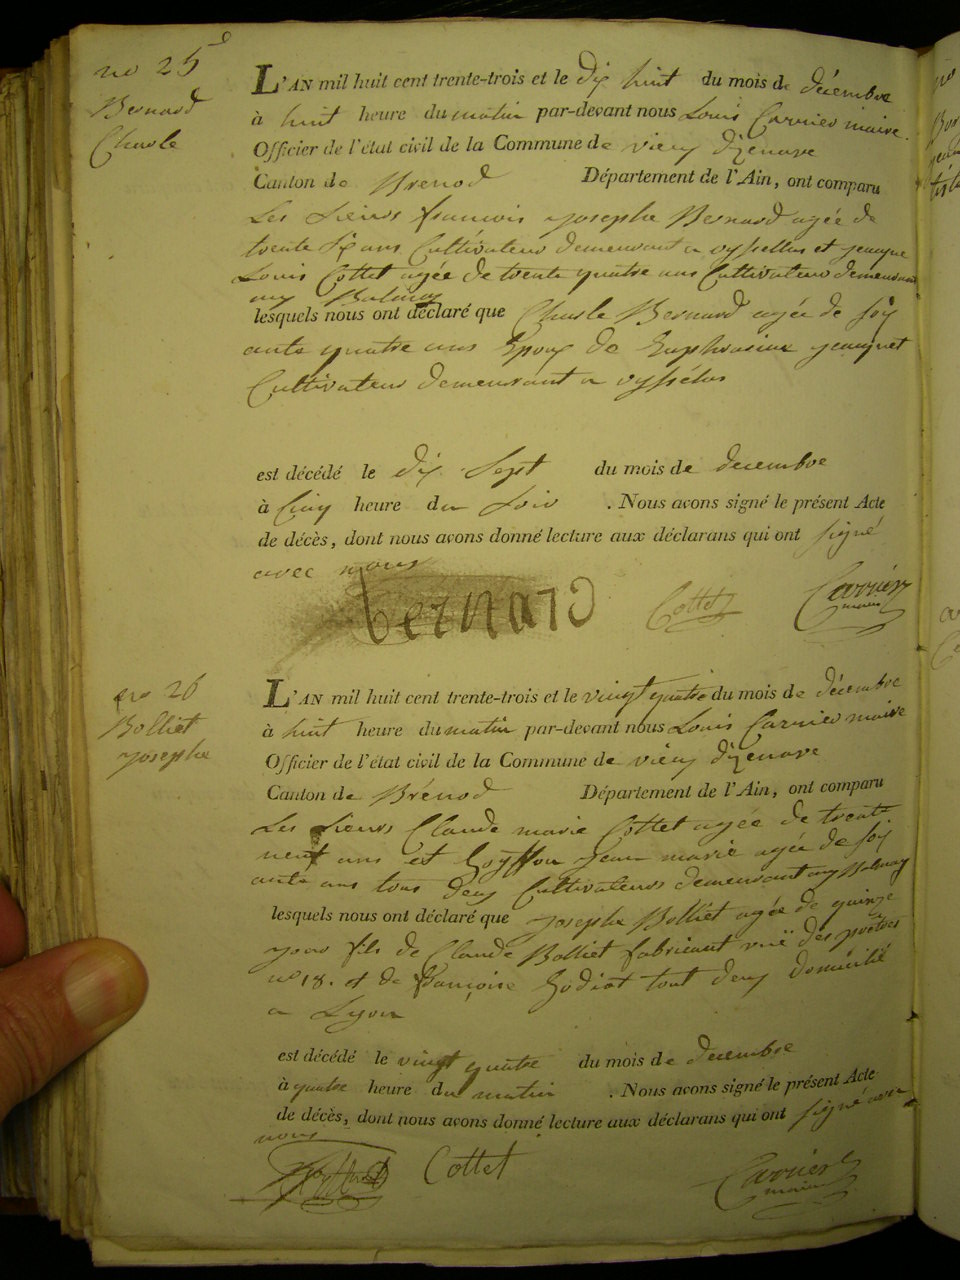 no 25
Bernard
Charle
L'AN mil huit cent trente-trois et le dix huit du mois de décembre
à huit heure du matin par-devant nous Louis Carrier maire.
Officier de l'état civil de la Commune de vieux dizenave
Canton de Brénod Département de l'Ain, ont comparu
Les Sieurs francois Josephe Bernard agée de
trente six ans Cultivateur demeurant a
Louis Cottet agée de trente quatre ans Cultivateur demeurant
lesquels nous ont déclaré que Charle Bernard agée de soix
ante quatre ans Epoux de Euphrosine Jeanjnet
Cultivateur demeurant a
est décédé le dix Sept du mois de decembre
à Cinq heure du Soir . Nous avons signé le présent Acte
de décès, dont nous avons donné lecture aux déclarans qui ont signé
avec nous
bernard Cottet Carrier
maire
no 26
Bolliet
Josephe
L'AN mil huit cent trente-trois et le vingt quatre du mois de décembre
à huit heure du matin par-devant nous Louis Carrier maire
Officier de l'état civil de la Commune de vieux dizenave
Canton de Brénod Département de l'Ain, ont comparu
Les Sieurs Claude marie Cottet agée de trente
neuf ans et Goyffon Jean marie agée de soix
ante ans tous deux Cultivateurs demeurant
lesquels nous ont déclaré que Josephe Bolliet agée de quinze
jour fils de Claude Bolliet fabricant ruë des prètres
no 18. et de françoise Godiot tout deux domicilié
a Lyon
est décédé le vingt quatre du mois de decembre
à quatre heure du matin . Nous avons signé le présent Acte
de décès, dont nous avons donné lecture aux déclarans qui ont signé avec
nous
Cottet Carrier
maire